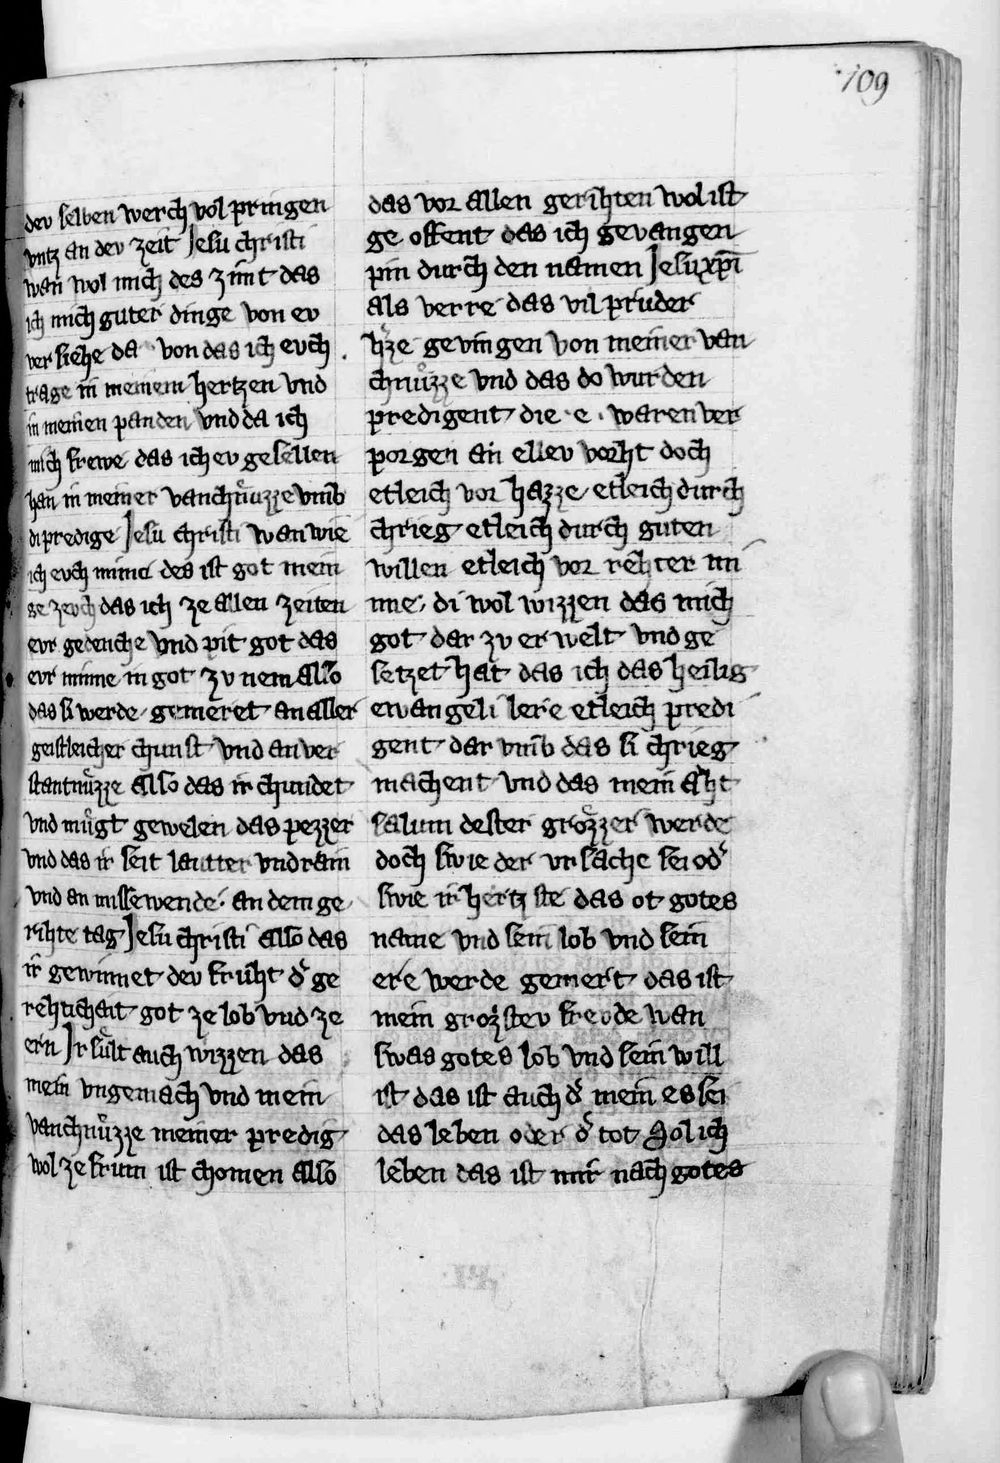 109
dev selben werch vol pringen
vntz an dev zeit Jesu christi
wan wol mich des zimt das
ich mich guter dinge von ev
ver siehe da von das ich evch
trage in meinem hertzen vnd
in meinen panden vnd da ich
mich frewe das ich ev gesellen
han in meiner vanchnuͤzze vmb
di predige Jesu christi wan wie
ich evch minne des ist got mein
ge zevch das ich ze allen zeiten
evr gedenche vnd pit got das
evr minne in got zv nem also
das si werde gemeret an aller
geistleicher chunst vnd an ver
stantnuͤzze also das ir chundet
vnd muͤgt gewelen das pezzer
vnd das ir seit lautter vnd rain
vnd an missewende an dem ge
rihte tag Jesu christi also das
ir gewinnet dev fruͤht dˢ ge
rehtichait got ze lob vnd ze
ern Ir suͤlt auch wizzen das
mein vngemach vnd mein
vanchnuͤzze meiner predig
wol ze frum ist chomen also
das vor allen gerihten wol ist
ge offent das ich gevangen
pin durch den namen Jesu xp̄i
als verre das vil pruder
hˢze gevingen von meiner van
chnuͤzze vnd das do wurden
predigent die · e · waren ver
porgen an ellev vorht doch
etleich vor hazze etleich durch
chrieg etleich durch guten
willen etleich vor rehter mi
nne, di wol wizzen das mich
got dar zv er welt vnd ge
setzet hat das ich das heilig
ewangeli lere etleich predi
gent dar vmb das si chrieg
machent vnd das mein aͤht
salum dester groͤzzer werde
doch swie der vrsache sei odˢ
swie ir hertz ste das ot gotes
name vnd sein lob vnd sein
ere werde gemert das ist
mein groͤzstev frevde wan
swas gotes lob vnd sein will
ist das ist auch dˢ mein es sei
das leben oder dˢ tot Sol ich
leben das ist mir nach gotes